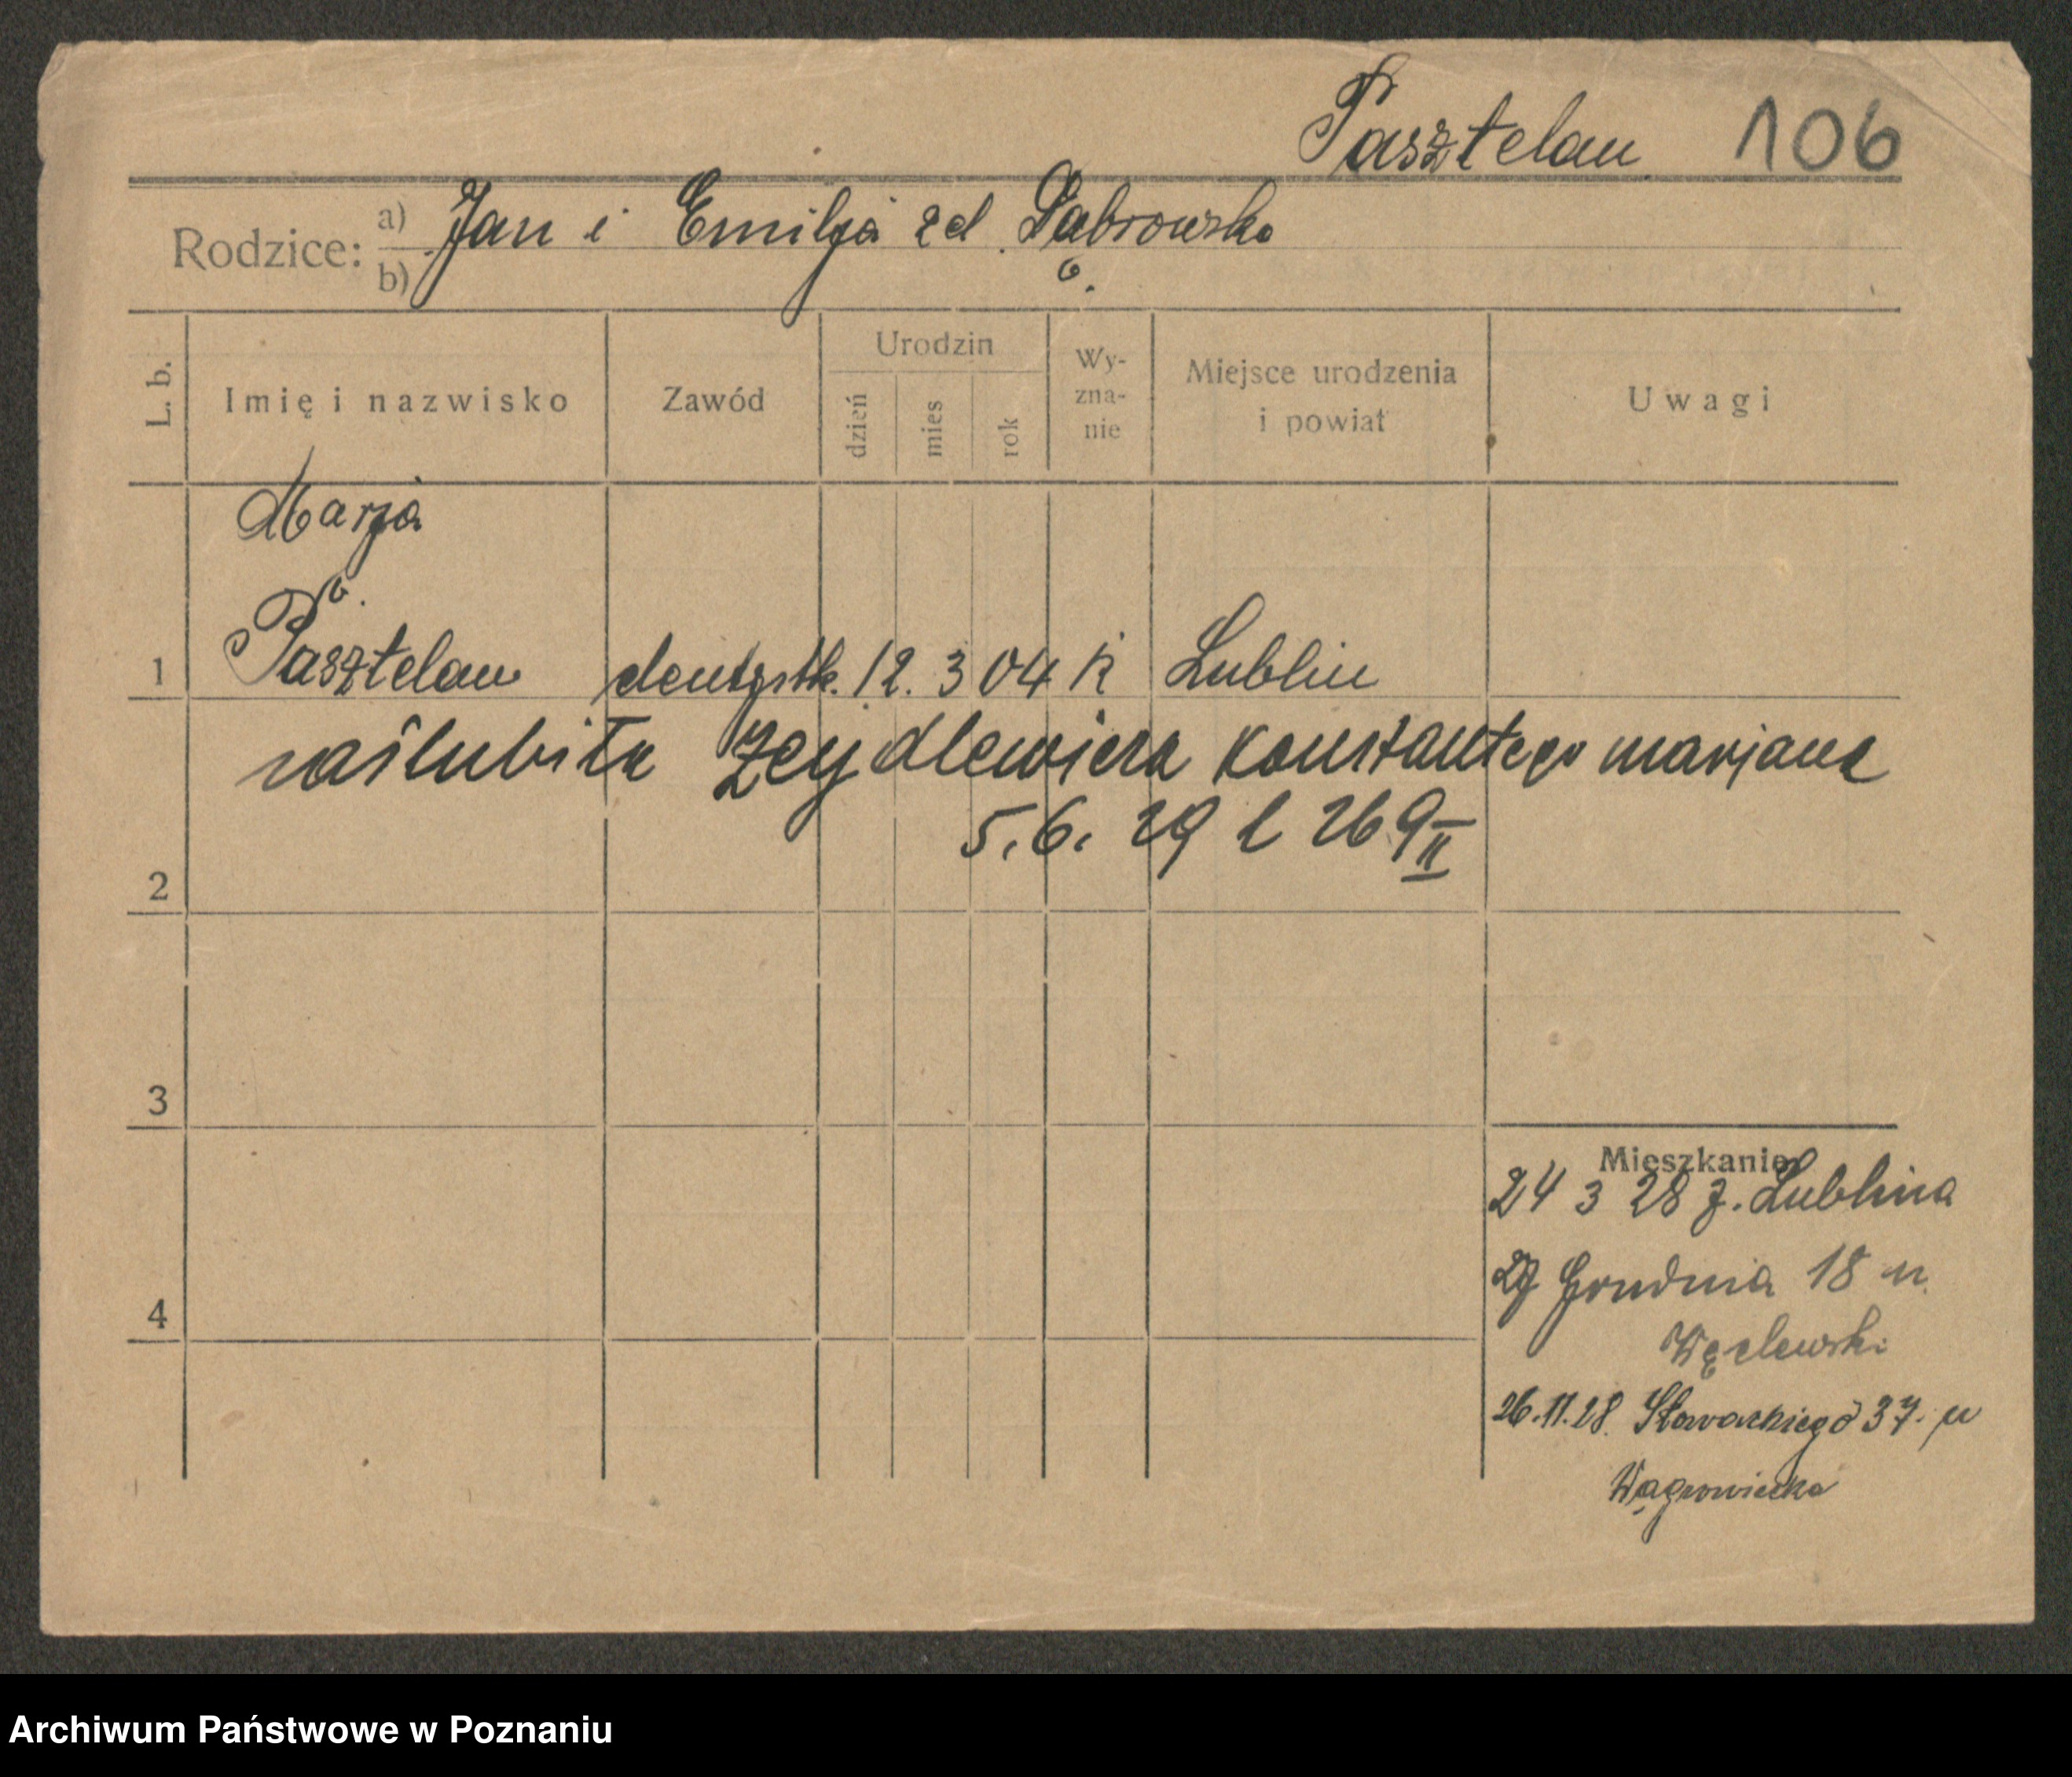 Pasztelan 106
Rodzice: a) Jan i Emilja zd. Dąbrowska
b)
L. b. Imię i nazwisko Zawód Urodzin dzień mies rok Wy-zna-nie Miejsce urodzenia i powiat Uwagi
Marja
1 Pasztelan dentystk. 12. 3 04 k Lublin
zaślubiła Zeydlewicza Konstantego Marjana
5.6. 29 l 269 II
2
3
Mieszkanie
24 3 28 z. Lublina
27 Grudnia 18 u.
4
Węclewski
26.11.28. Słowackiego 37. u
Wągrowiecka
Archiwum Państwowe w Poznaniu